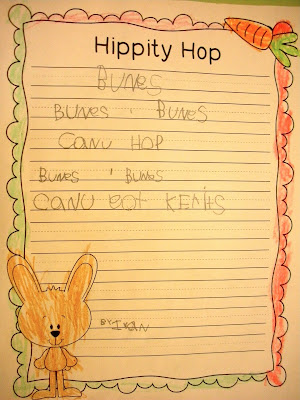 Hippity Hop
BUNES
BUNES , BUNES
CANU HOP
BUNES , BUNES
CANU eat KERits
BY IVAN